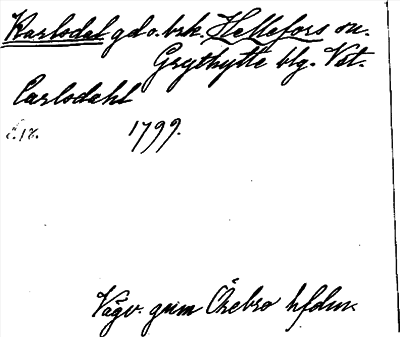 Karlsdal gd o. brk. Hellefors sn.
Grythytte blg. Vst.
Carlsdahl
1799.
Vägv. gnm Örebro hfdm